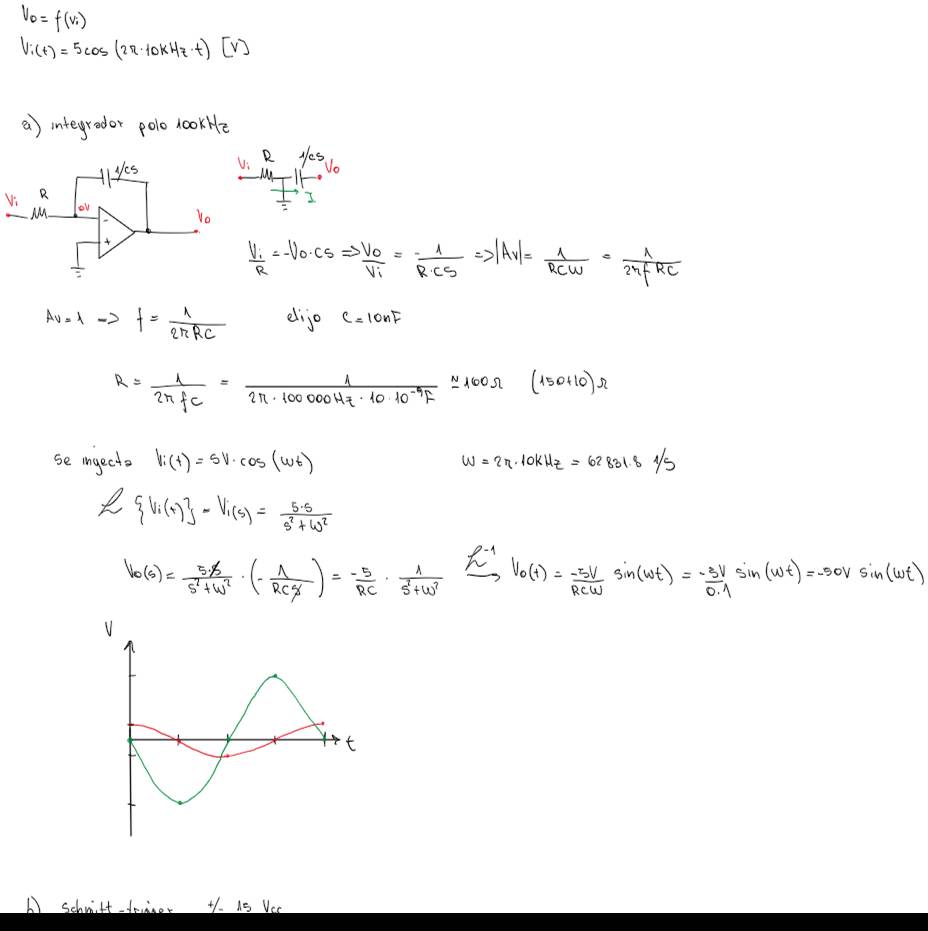 Vo = f(vi)
Vi(t) = 5 cos (2π·10KHz·t) [V]
a) integrador polo 100KHz
1/CS
R
Vi
0V
-
+
Vo
Vi R 1/CS Vo
I
Vi/R = -Vo·CS => Vo/Vi = -1/(R·CS) => |Av| = 1/(RCW) = 1/(2πf RC)
Av=1 -> f = 1/(2πRC) elijo C=10nF
R = 1/(2πfC) = 1/(2π·100 000Hz·10·10⁻⁹F) ≅ 160Ω (150+10)Ω
se injecta Vi(t) = 5V·cos(wt) W = 2π·10KHz = 62831.8 1/S
ℒ {Vi(t)} = Vi(s) = 5·s/(s²+w²)
Vo(s) = 5·s/(s²+w²) · (-1/(RCs)) = -5/RC · 1/(s²+w²) ℒ⁻¹ -> Vo(t) = -5V/(RCW) sin(wt) = -5V/0.1 sin(wt) = -50V sin(wt)
V
t
b) Schmitt-trigger +/- 15 Vcc